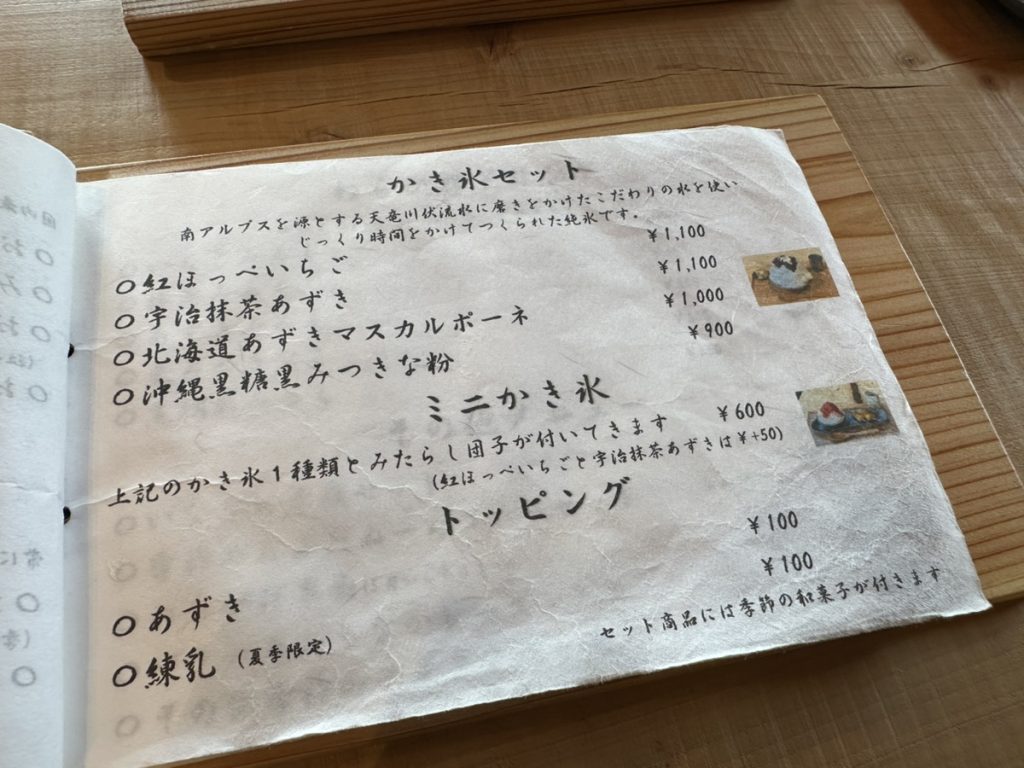 かき氷セット
南アルプスを源とする天竜川伏流水に磨きをかけたこだわりの水を使い
じっくり時間をかけてつくられた純氷です。
○紅ほっぺいちご ¥1,100
○宇治抹茶あずき ¥1,100
○北海道あずきマスカルポーネ ¥1,000
○沖縄黒糖黒みつきな粉 ¥900
ミニかき氷
上記のかき氷1種類とみたらし団子が付いてきます ¥600
(紅ほっぺいちごと宇治抹茶あずきは¥+50)
トッピング
○あずき ¥100
○練乳 (夏季限定) ¥100
セット商品には季節の和菓子が付きます